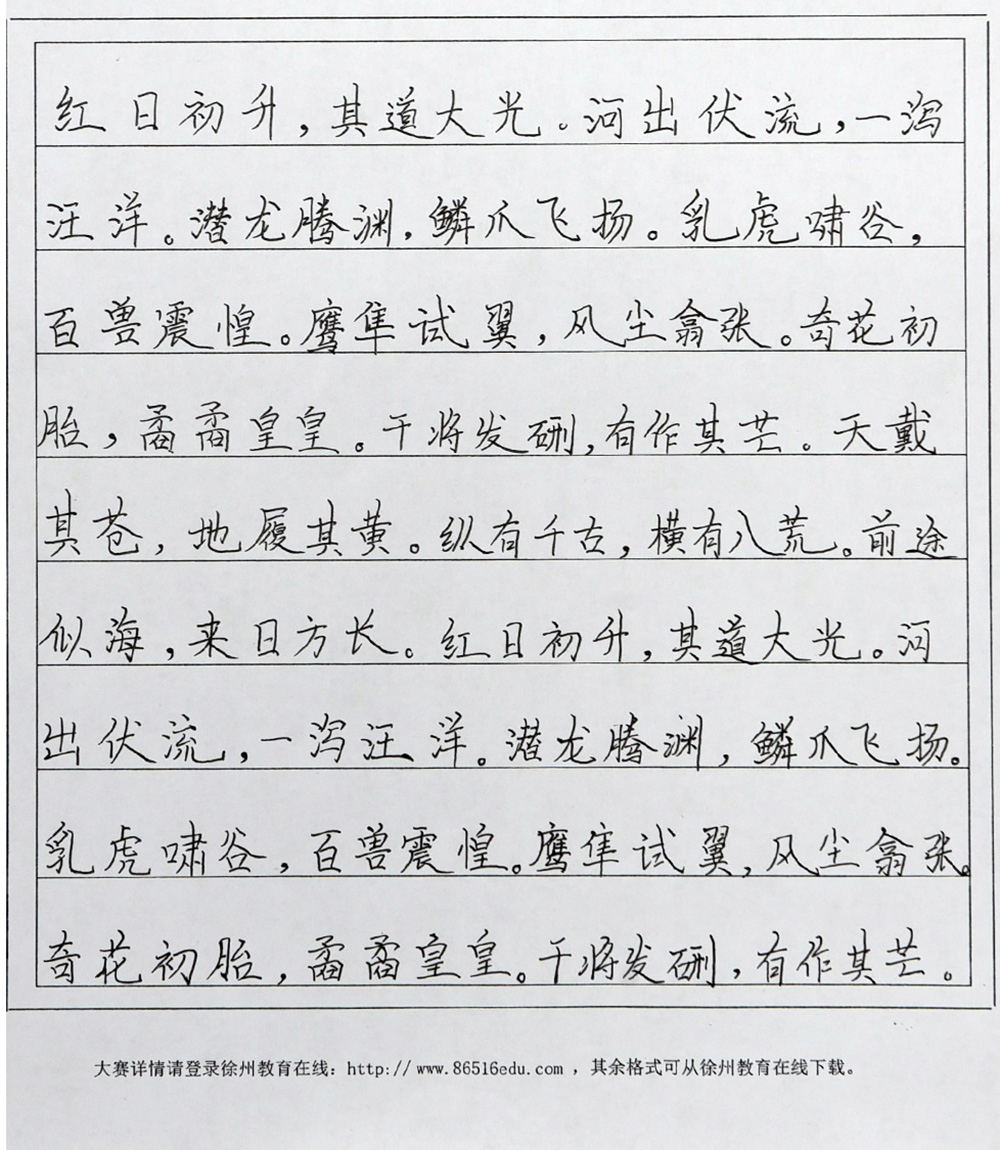 红日初升，其道大光。河出伏流，一泻
汪洋。潜龙腾渊，鳞爪飞扬。乳虎啸谷，
百兽震惶。鹰隼试翼，风尘翕张。奇花初
胎，矞矞皇皇。干将发硎，有作其芒。天戴
其苍，地履其黄。纵有千古，横有八荒。前途
似海，来日方长。红日初升，其道大光。河
出伏流，一泻汪洋。潜龙腾渊，鳞爪飞扬。
乳虎啸谷，百兽震惶。鹰隼试翼，风尘翕张。
奇花初胎，矞矞皇皇。干将发硎，有作其芒。
大赛详情请登录徐州教育在线：http://www.86516edu.com，其余格式可从徐州教育在线下载。